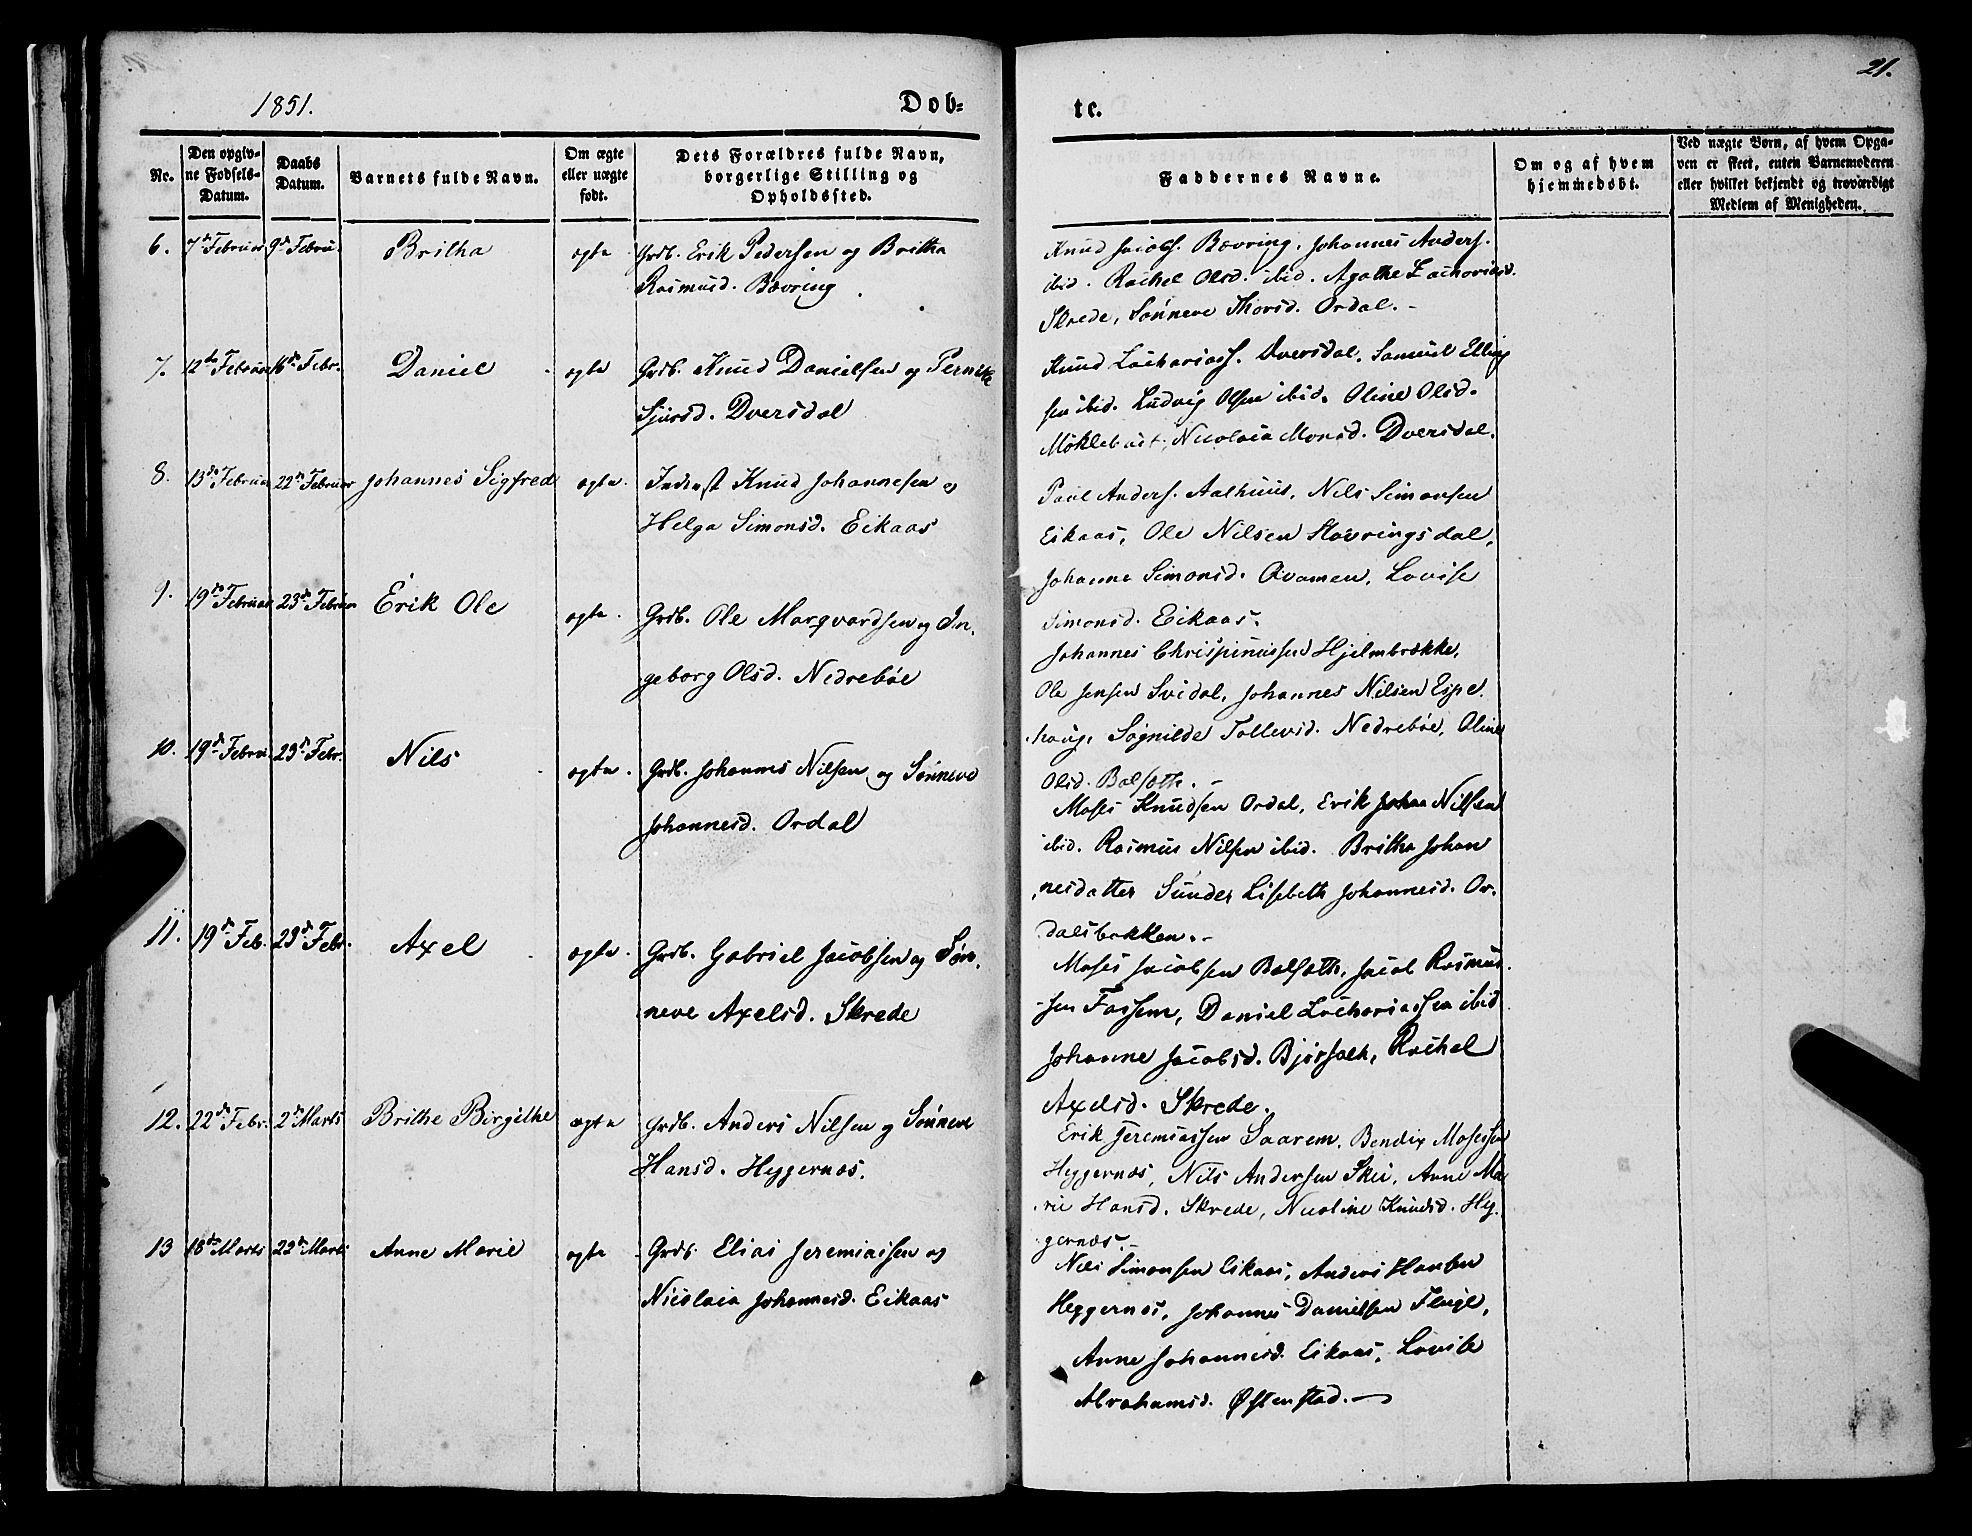 1851.
Dob-
te.
21.
No.
Den opgiv-
ne Fødsels-
Datum.
Daabs
Datum.
Barnets fulde Navn.
Om ægte
eller uægte
født.
Dets Forældres fulde Navn,
borgerlige Stilling og
Opholdssted.
Faddernes Navne.
Om og af hvem
hjemmedøbt.
Ved uægte Børn, af hvem Opga-
ven er skeet, enten Barnemoderen
eller hvilket bekjendt og troværdigt
Medlem af Menigheden.
6. 7de Februar 9de Febru. Britha ægte Grdb. Erik Pedersen og Britha
Rasmusd. Bævring
Knud Jacobs. Bævring, Johannes Anders.
ibid. Rachel Olsd. ibid. Agathe Zachariasd.
Skrede, Sønneve Thorsd. Ordal.-
7. 12te Februar 16de Febr. Daniel ægte Grdb. Knud Danielsen og Pernille
Sjursd. Dversdal
Knud Zachariass. Dversdal, Samuel Elling
sen ibid. Ludvig Olsen ibid. Oline Olsd.
Møklebust, Nicolaia Monsd. Dversdal.
8. 13de Februar 22de Februar Johannes Sigfred ægte Inderst Knud Johannesen og
Helga Simonsd. Eikaas
Paul Anders. Aalhuus, Nils Simonsen
Eikaas, Ole Nilsen Støvringsdal,
Johanne Simonsd. Qvamen, Lovise
Simonsd. Eikaas.
9. 19de Februar 23de Februar Erik Ole ægte Grdb. Ole Marqvardsen og In-
geborg Olsd. Nedrebøe
Johannes Chrispinussen Hjelmbrække,
Ole Jensen Svidal, Johannes Nilsen Espe-
haug, Søgnilde Tollevsd. Nedrebøe, Oline
Olsd. Bolsæth.-
10. 19de Februar 23de Febr. Nils ægte Grdb. Johannes Nilsen og Sønneve
Johannesd. Ordal
Moses Knudsen Ordal, Erik Nilsen
ibid. Rasmus Nilsen ibid. Britha Johan
nesdatter Sunder Lisebeth Johannesd. Or-
dalsbakken.-
11. 19de Feb. 23de Febr. Axel ægte Grdb. Gabriel Jacobsen og Søn-
neve Axelsd. Skrede
Moses Jacobsen Bolsæth, Jacob Rasmus-
sen Fossem, Daniel Zachariassen ibid
Johanne Jacobsd. Bjørsæth, Rachel
Axelsd. Skrede.
12. 22de Febr. 2de Marts Brithe Birgithe ægte Grdb. Anders Nilsen og Sønneve
Hansd. Heggernæs.
Erik Jeremiassen Saarem, Bendix Mosessen
Heggernæs, Nils Andersen Skei, Anne Ma
rie Hansd. Skrede, Nicoline Knudsd. Heg-
gernæs.-
13 18de Marts 22de Marts Anne Marie ægte Grdb. Elias Jeremiassen og
Nicolaia Johannesd. Eikaas
Nils Simonsen Eikaas, Anders Hansen
Heggernæs, Johannes Danielsen Fluge,
Anne Johannesd. Eikaas, Lovise
Abrahamsd. Østenstad.-